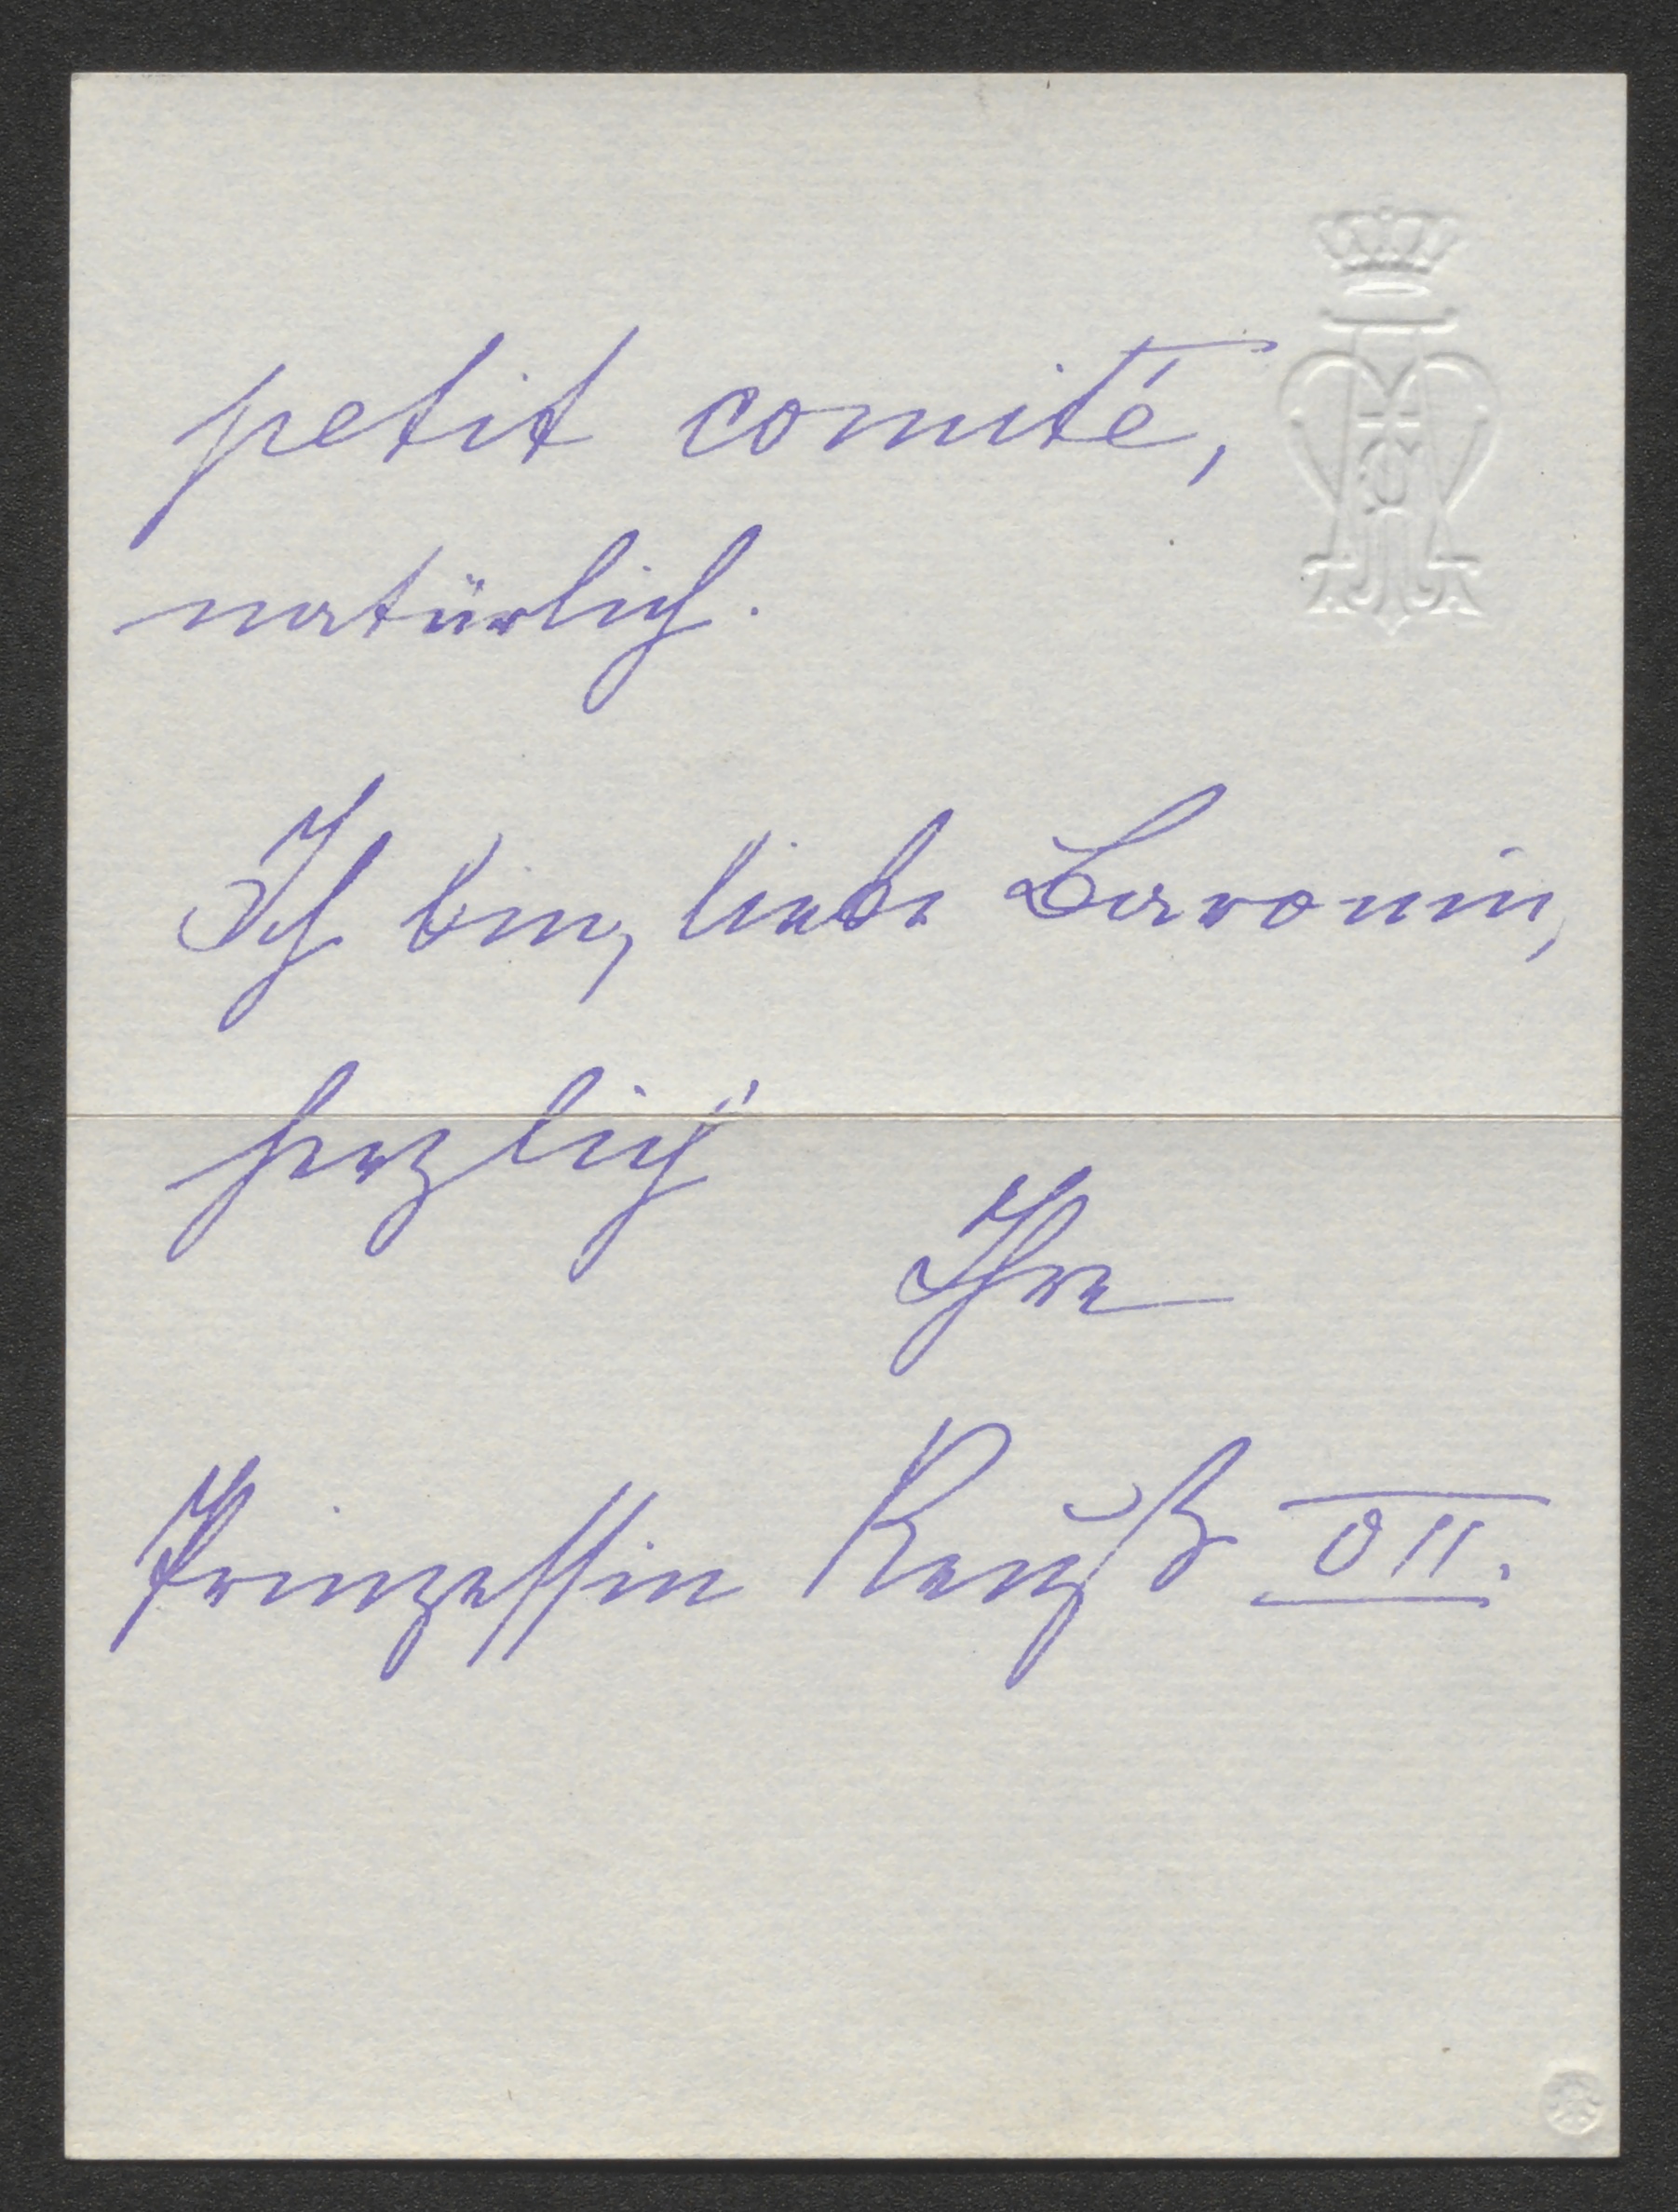 petit comité,
natürlich.
Ich bin, liebe Baronin,
herzlich
Ihre
Prinzessin Reuß VII.